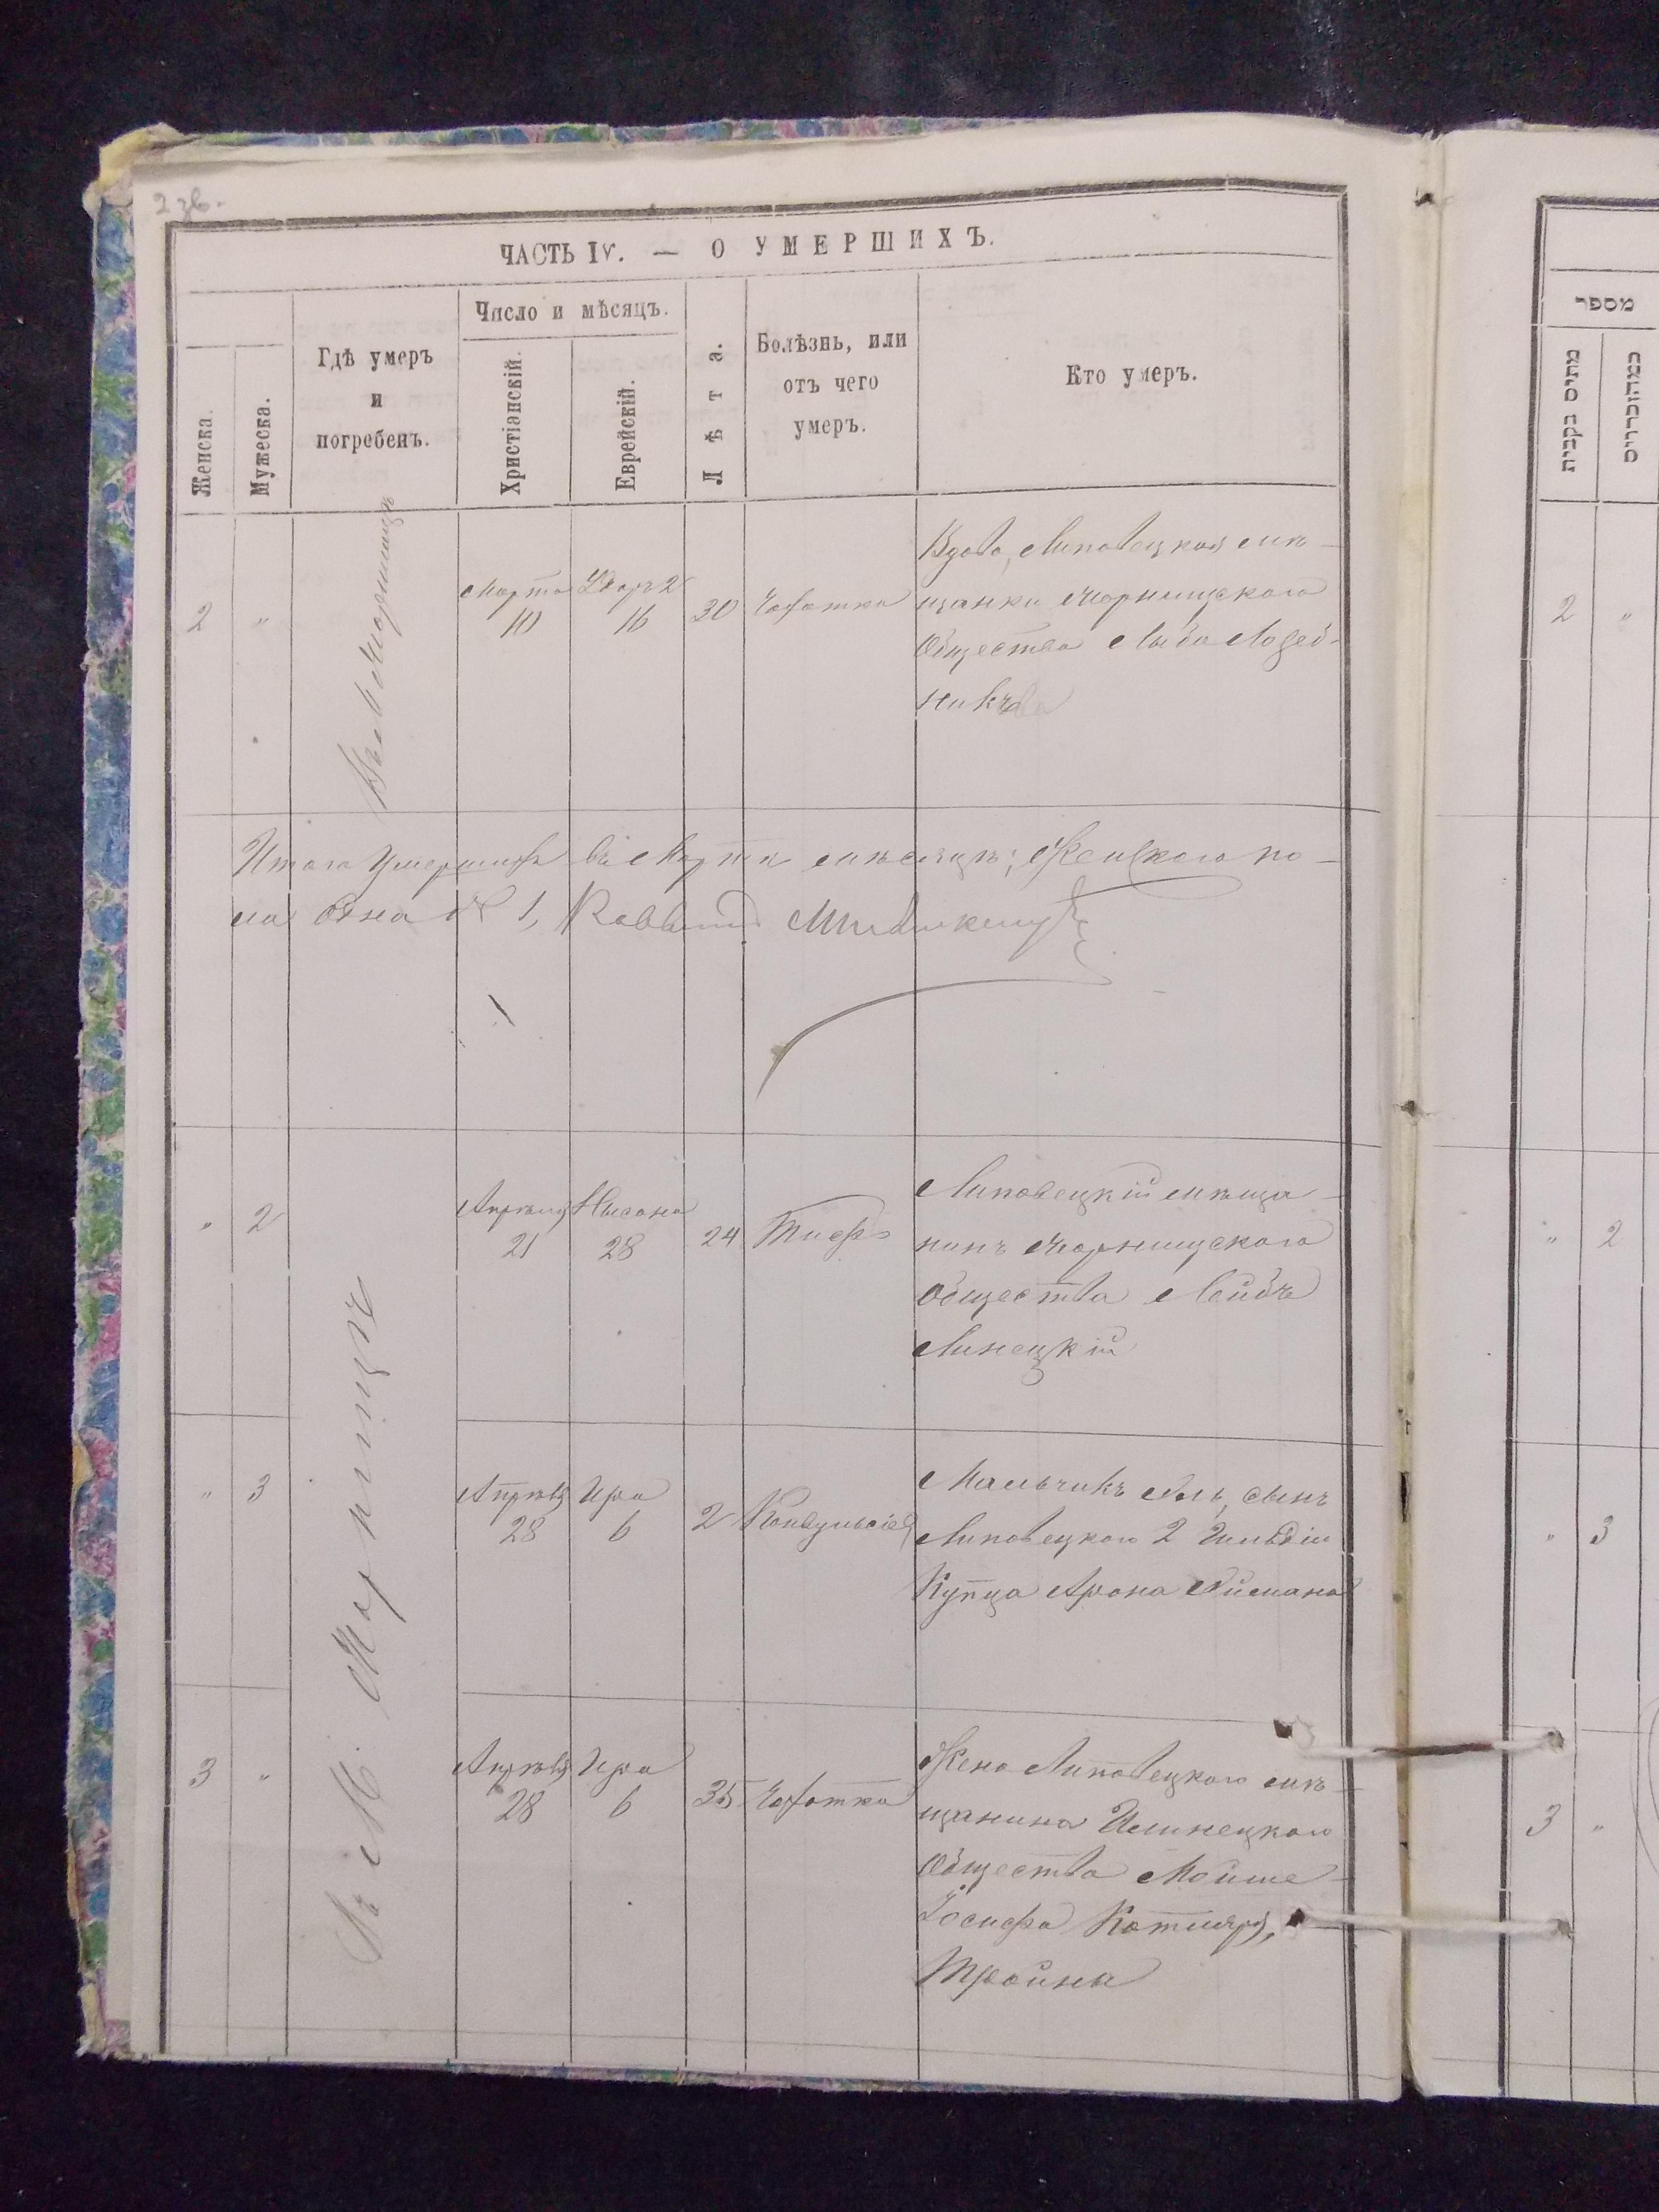 2 зв.
ЧАСТЬ IV. — О УМЕРШИХЪ.
Женска.
Мужеска.
Гдѣ умеръ
и
погребенъ.
Число и мѣсяцъ.
Христіанскій.
Еврейскій.
Лѣта.
Болѣзнь, или
отъ чего
умеръ.
Кто умеръ.
2
"
Марта
10
Адаръ 2
16
30
Чахотка
Вдова, Липовецкая мѣ-
щанка
Общества
Итого умершихъ въ Мартѣ мѣсяцѣ; Женскаго по-
ла одна № 1, Раввинъ
"
2
Апрѣля
21
Нисана
28
24
Тифъ
Липовецкій мѣща-
нинъ
общества Лейбъ
Линецкій
"
3
Апрѣля
28
Ира
6
2
Конвульсія
Мальчикъ сынъ
Липовецкаго 2 Гильдіи
Купца Арона
3
"
Апрѣля
28
Ира
6
35
Чахотка
Жена Липовецкого мѣ-
щанина Илинецкаго
Общества Мойше-
Іосифа Котляра,
Тройна
מספר
מתים נקבות
כמה זכרים
2
"
"
2
"
3
3
"